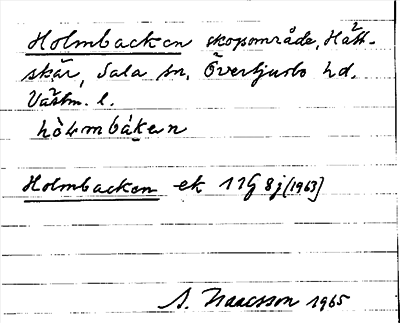 Holmbacken skogsområde, Hått-
skär, Sala sn. Övertjurbo hd.
Västm. l.
hòłmbákęn
Holmbacken ek 11G 8j [1963]
S. Isaacsson 1965